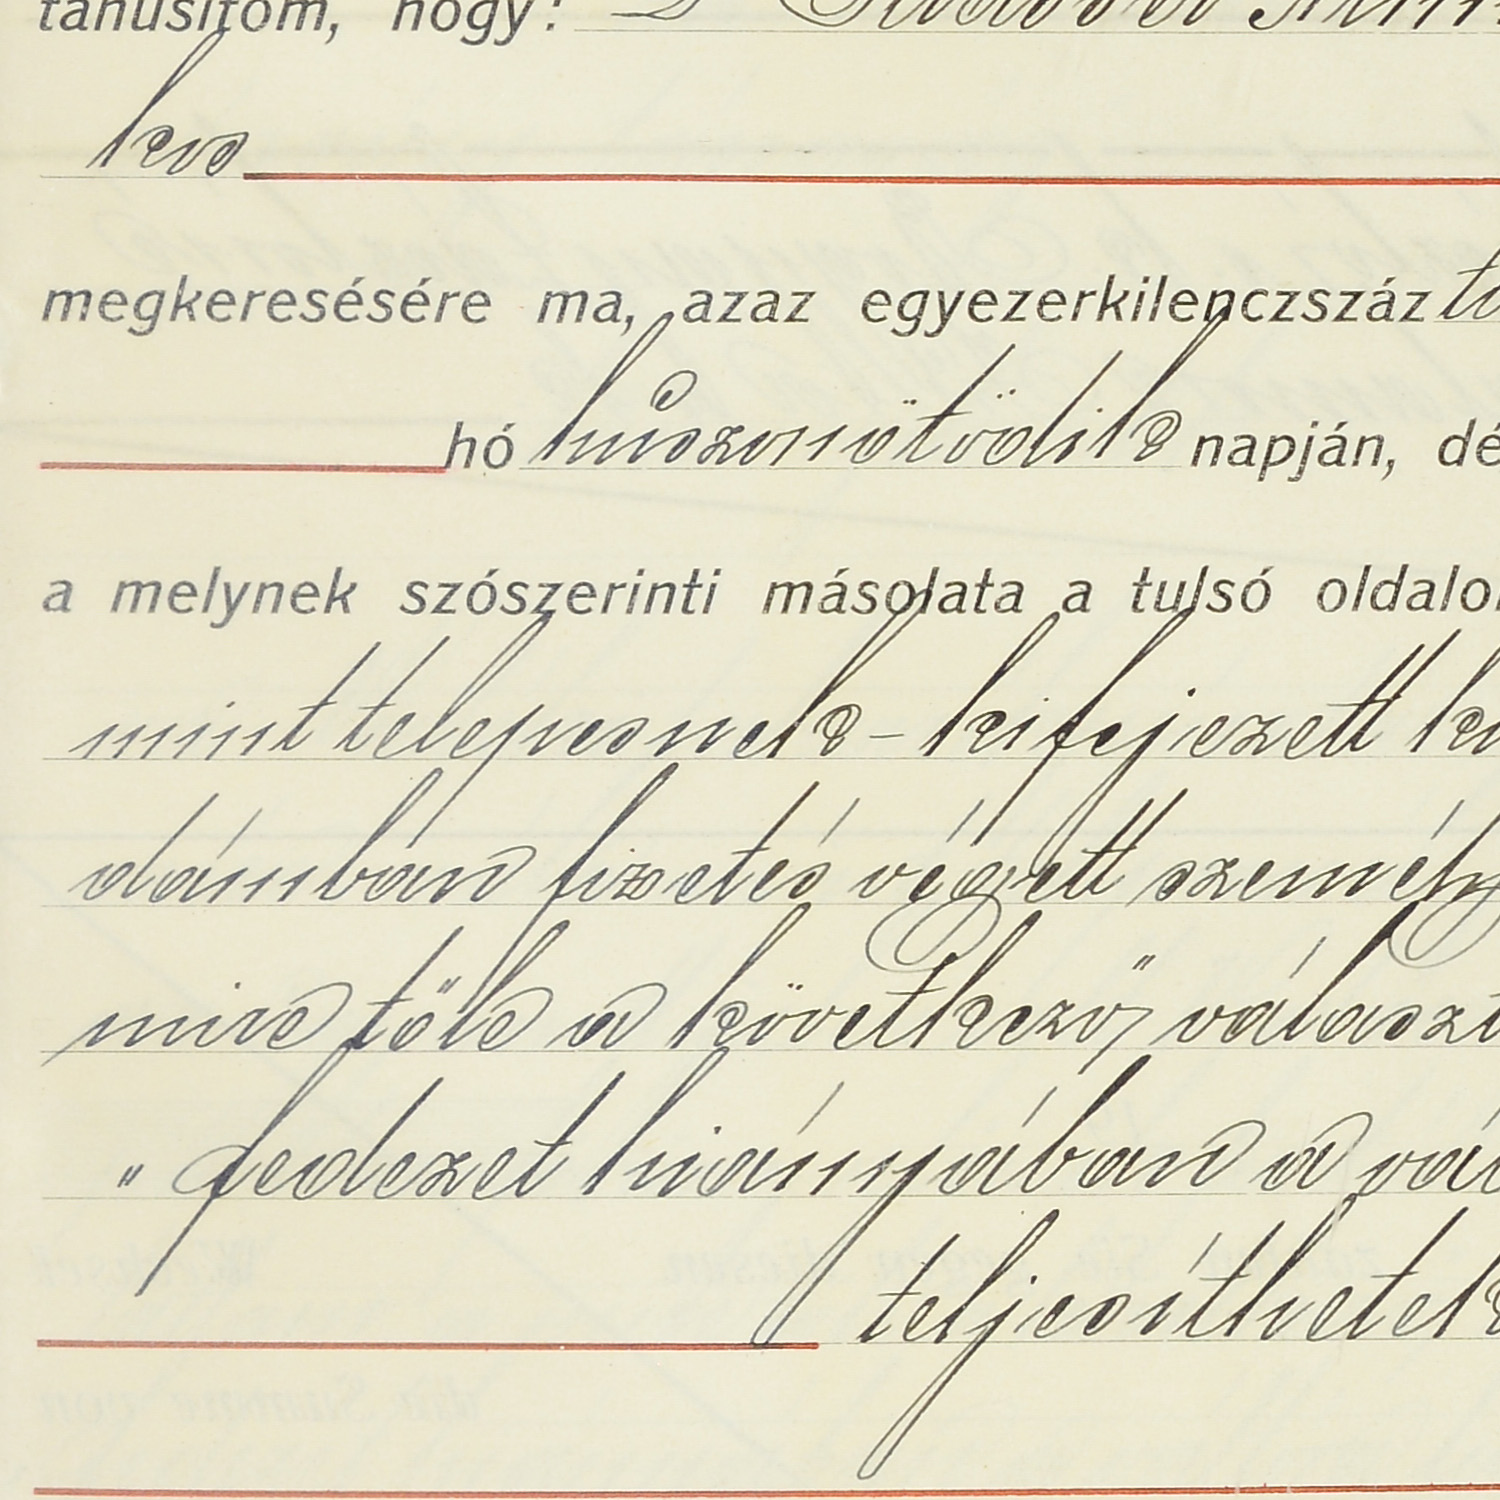 tanusítom, hogy:
kes
megkeresésére ma, azaz egyezerkilenczszáz
hó húszonötödik napján, dé
a melynek szószerinti másolata a tulsó oldalon
mint telepesnek - kifejezett
dámban fizetés végett személy
mire tőle a következő, választ
" fedezet hiányában a vá
teljesíthetek